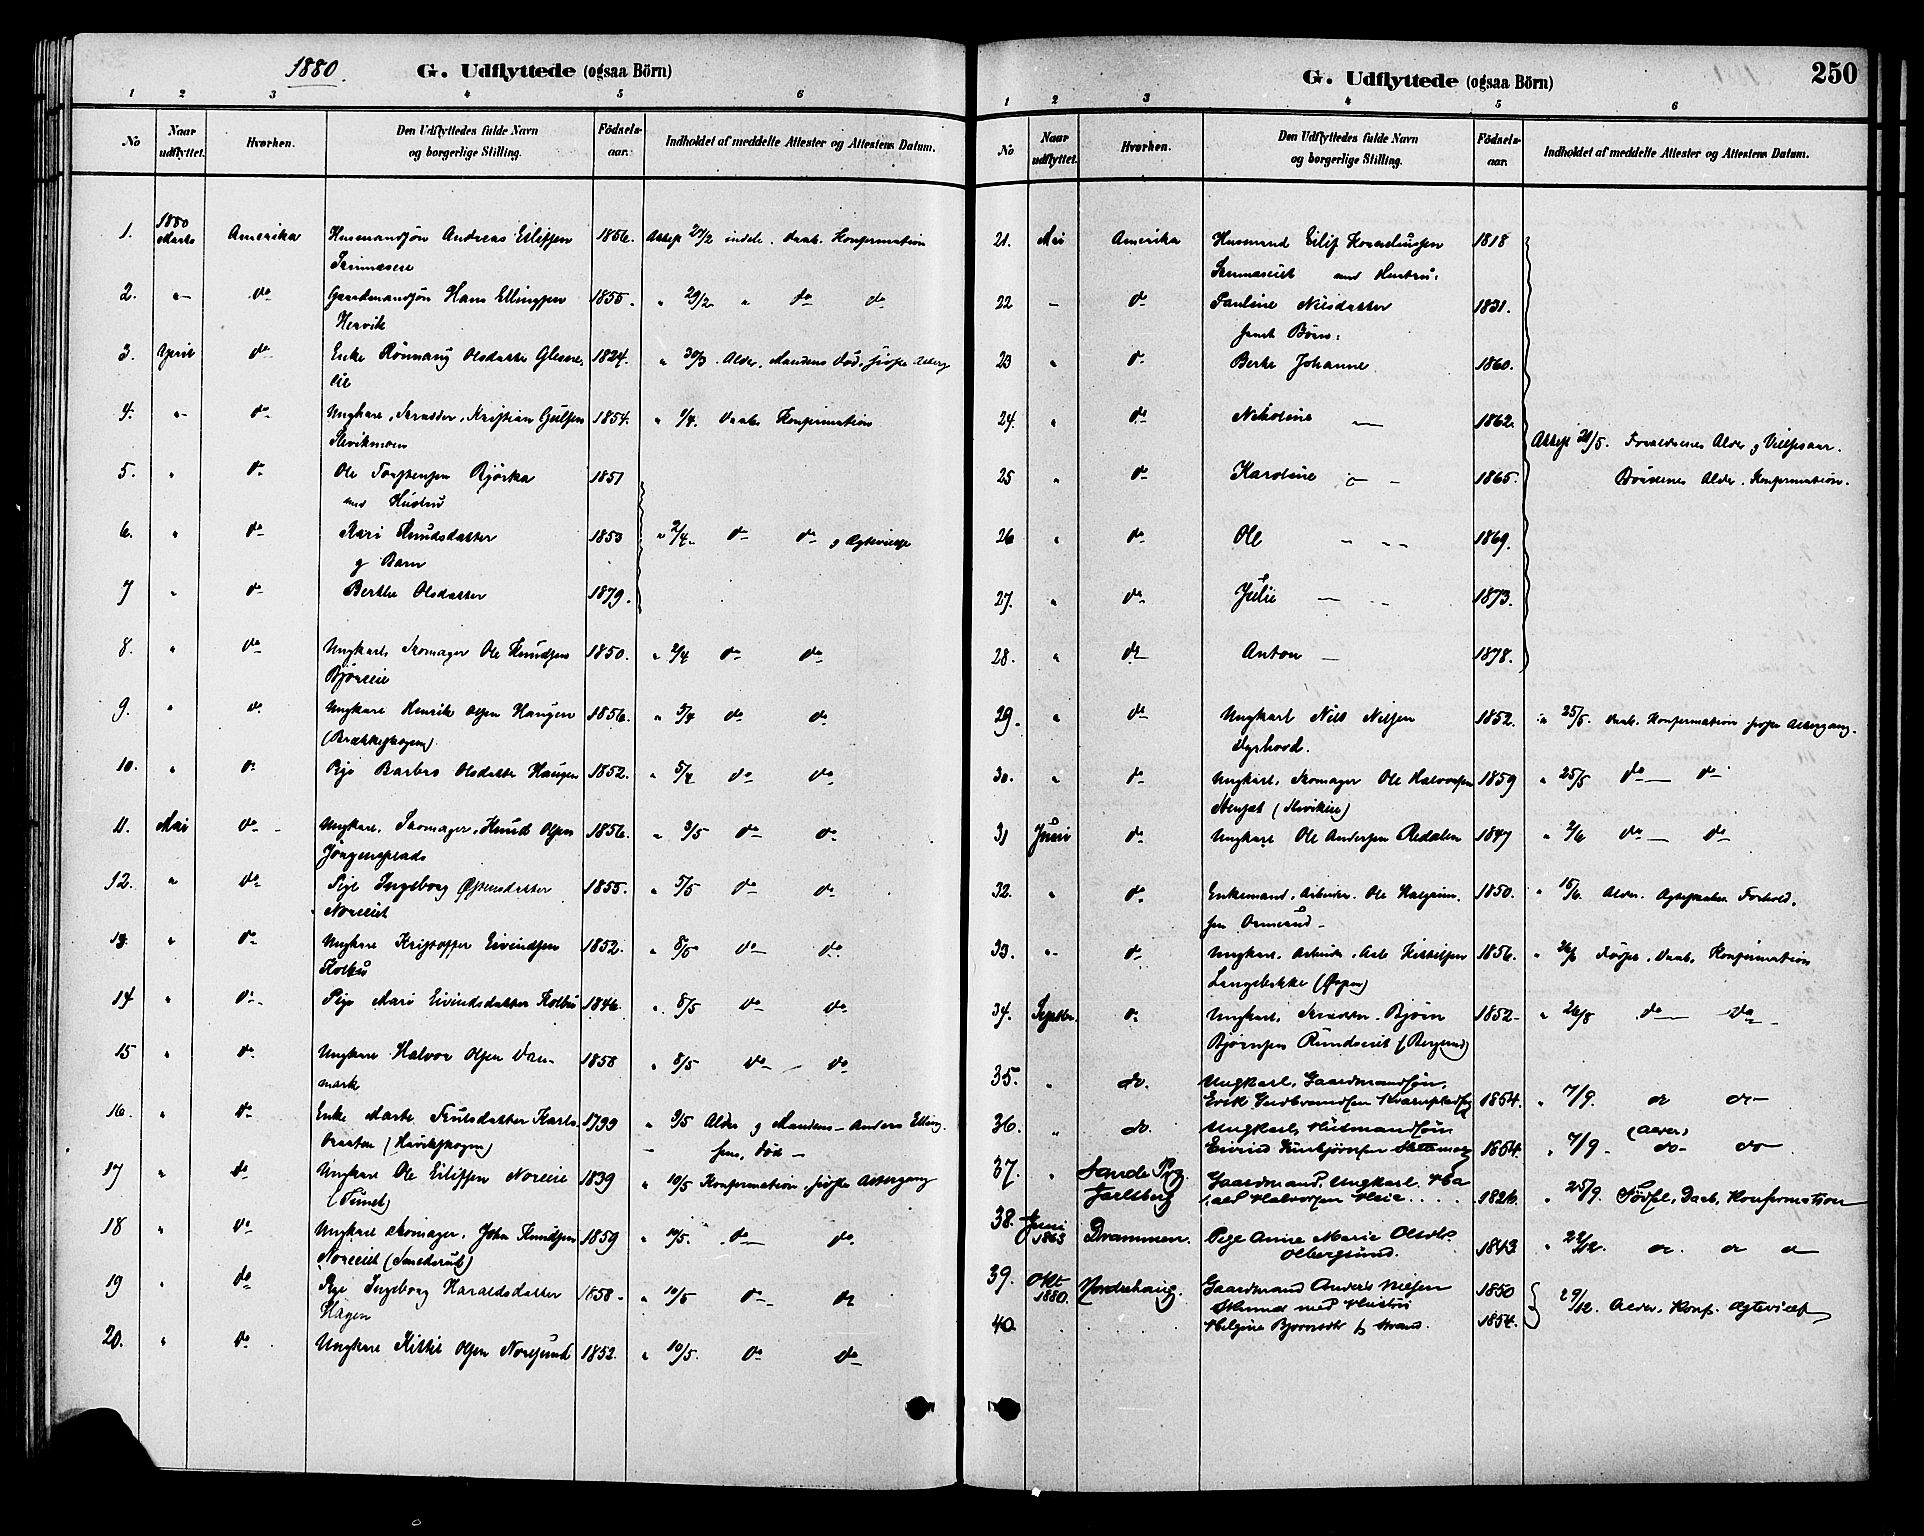 1880.
G. Udflyttede (ogsaa Börn)
1 2 3 4 5 6
No
Naar udflyttet.
Hvorhen.
Den Udflyttedes fulde Navn og borgerlige Stilling.
Födsels-aar.
Indholdet af meddelte Attester og Attestens Datum.
1. 1880 Marts Amerika Husmandsøn Andreas Eilifsen 1856. Attest 27/2 indeh. Daab. Konfirmation
2. " do Gaardmandsøn Hans Ellingsen 1855. " 29/2 " do do
Hervik
3. April do Enke Rönnaug Olsdatter 1824. " 30/3 Alder, Mandens Död, sidste Alterg
4. " do Ungkarl, Skrædder, Kristian Gulsen 1854. " 1/4. Daab. Konfirmation
5. " do Ole Torstensen Bjørka 1851
med Hustru
6. " do Kari Knudsdatter 1853 " 2/4. do do og Ægtevielse
og Barn
7 " do Berthe Olsdatter 1879.
8. " do Ungkarl, Skomager Ole Knudsen 1850. " 2/4 do do
9. " do Ungkarl Henrik Olsen Haugen 1856. " 5/4 do do
10. " do Pige Barbro Olsdatter Haugen 1852. " 5/4 do do
11. Mai do Ungkarl, Skomager, Knud Olsen 1856. " 3/5 do do
Jörgensplads
12. " do Pige Ingeborg 1855. " 5/5 do do
Noreeiet
13. " do Ungkarl Kristoffer Eivindsen 1852. " 8/5 do do
Kolbu
14 " do Pige Mari Eivindsdatter Kolbu 1846. " 8/5 do do
15 " do Ungkarl Halvor Olsen Dan- 1858 " 8/5 do do
mark
16. " do Enke Marte Trulsdatter Karls- 1799 " 9/5 Alder og Mandens - Anders Elling-
braaten (Hervikskogen) sens, Död -
17 " do Ungkarl Ole Eilifsen Noreeie 1839 " 10/5 Konfirmation, sidste Altergang
18 " do Ungkarl Skomager, John Knudsen 1859 " 10/5. do do
Noreeiet (Smedsrud)
19 " do Pige Ingeborg Haraldsdatter 1858 " 10/5 do do
Hagen
20. " do Ungkarl Kittil Olsen Noresund 1852. " 10/5. do do
G. Udflyttede (ogsaa Börn)
250
1 2 3 4 5 6
No
Naar udflyttet.
Hvorhen.
Den Udflyttedes fulde Navn og borgerlige Stilling.
Födsels-aar.
Indholdet af meddelte Attester og Attestens Datum.
21. Mai Amerika Husmand Eilif 1818
med Hustru:
22 — do Pauline Nilsdatter 1831.
samt Børn:
23 " do Berte Johanne 1860.
24. " do Nikoline — 1862.
Attest 21/5. Forældrenes Alder og Vielsesaar.
25 " do Karoline 1865. Børnenes Alder. Konfirmation.
26 " do Ole 1869.
27. " do Julie 1873.
28. " do Anton 1878.
29. " do Ungkarl Nils Nilsen 1852. " 25/5. Daab. Konfirmation sidste Altergang.
30. " do Ungkarl, Skomager Ole Halvorsen 1859 " 25/5 do do
31 Juni do Ungkarl Ole Andersen Redalen 1847 " 2/6 do do
32. " do Enkemand, Arbeider. Ole Halgrim- 1850. " 15/6. Alder. Ægteskabs Forhold.
sen Ormerud
33. " do Ungkarl, Arbeider, Asle Kittilsen 1856. " Födsel, Daab, Konfirmation
Langebekke
34. Septbr. do Ungkarl, Skrædder. Bjørn 1852 " 26/8 do do
Bjørnsen (Bergerud)
35. " do. Ungkarl, Gaardmandsøn,
Erik Gudbrandsen 1854. " 7/9. do do
36. " do. Ungkarl, Husmandsøn (Alder)
Eivind 1854. " 7/9. do do
37. " Sande Prg. Gaardmand, Ungkarl, Ha
Jarlsberg Halvorsen 1826. " 25/9. Födsl, Daab, Konfirmation
38. Juni 1863 Drammen. Pige Anne Marie Olsdtr. 1843 " 22/12. do. do do
39. Okt 1880. Norderhaug. Gaardmand Anders Nilsen 1850
med Hustru 29/12. Alder, Konf. Ægteviet
40. Helgine Bjørnsdtr 1854.